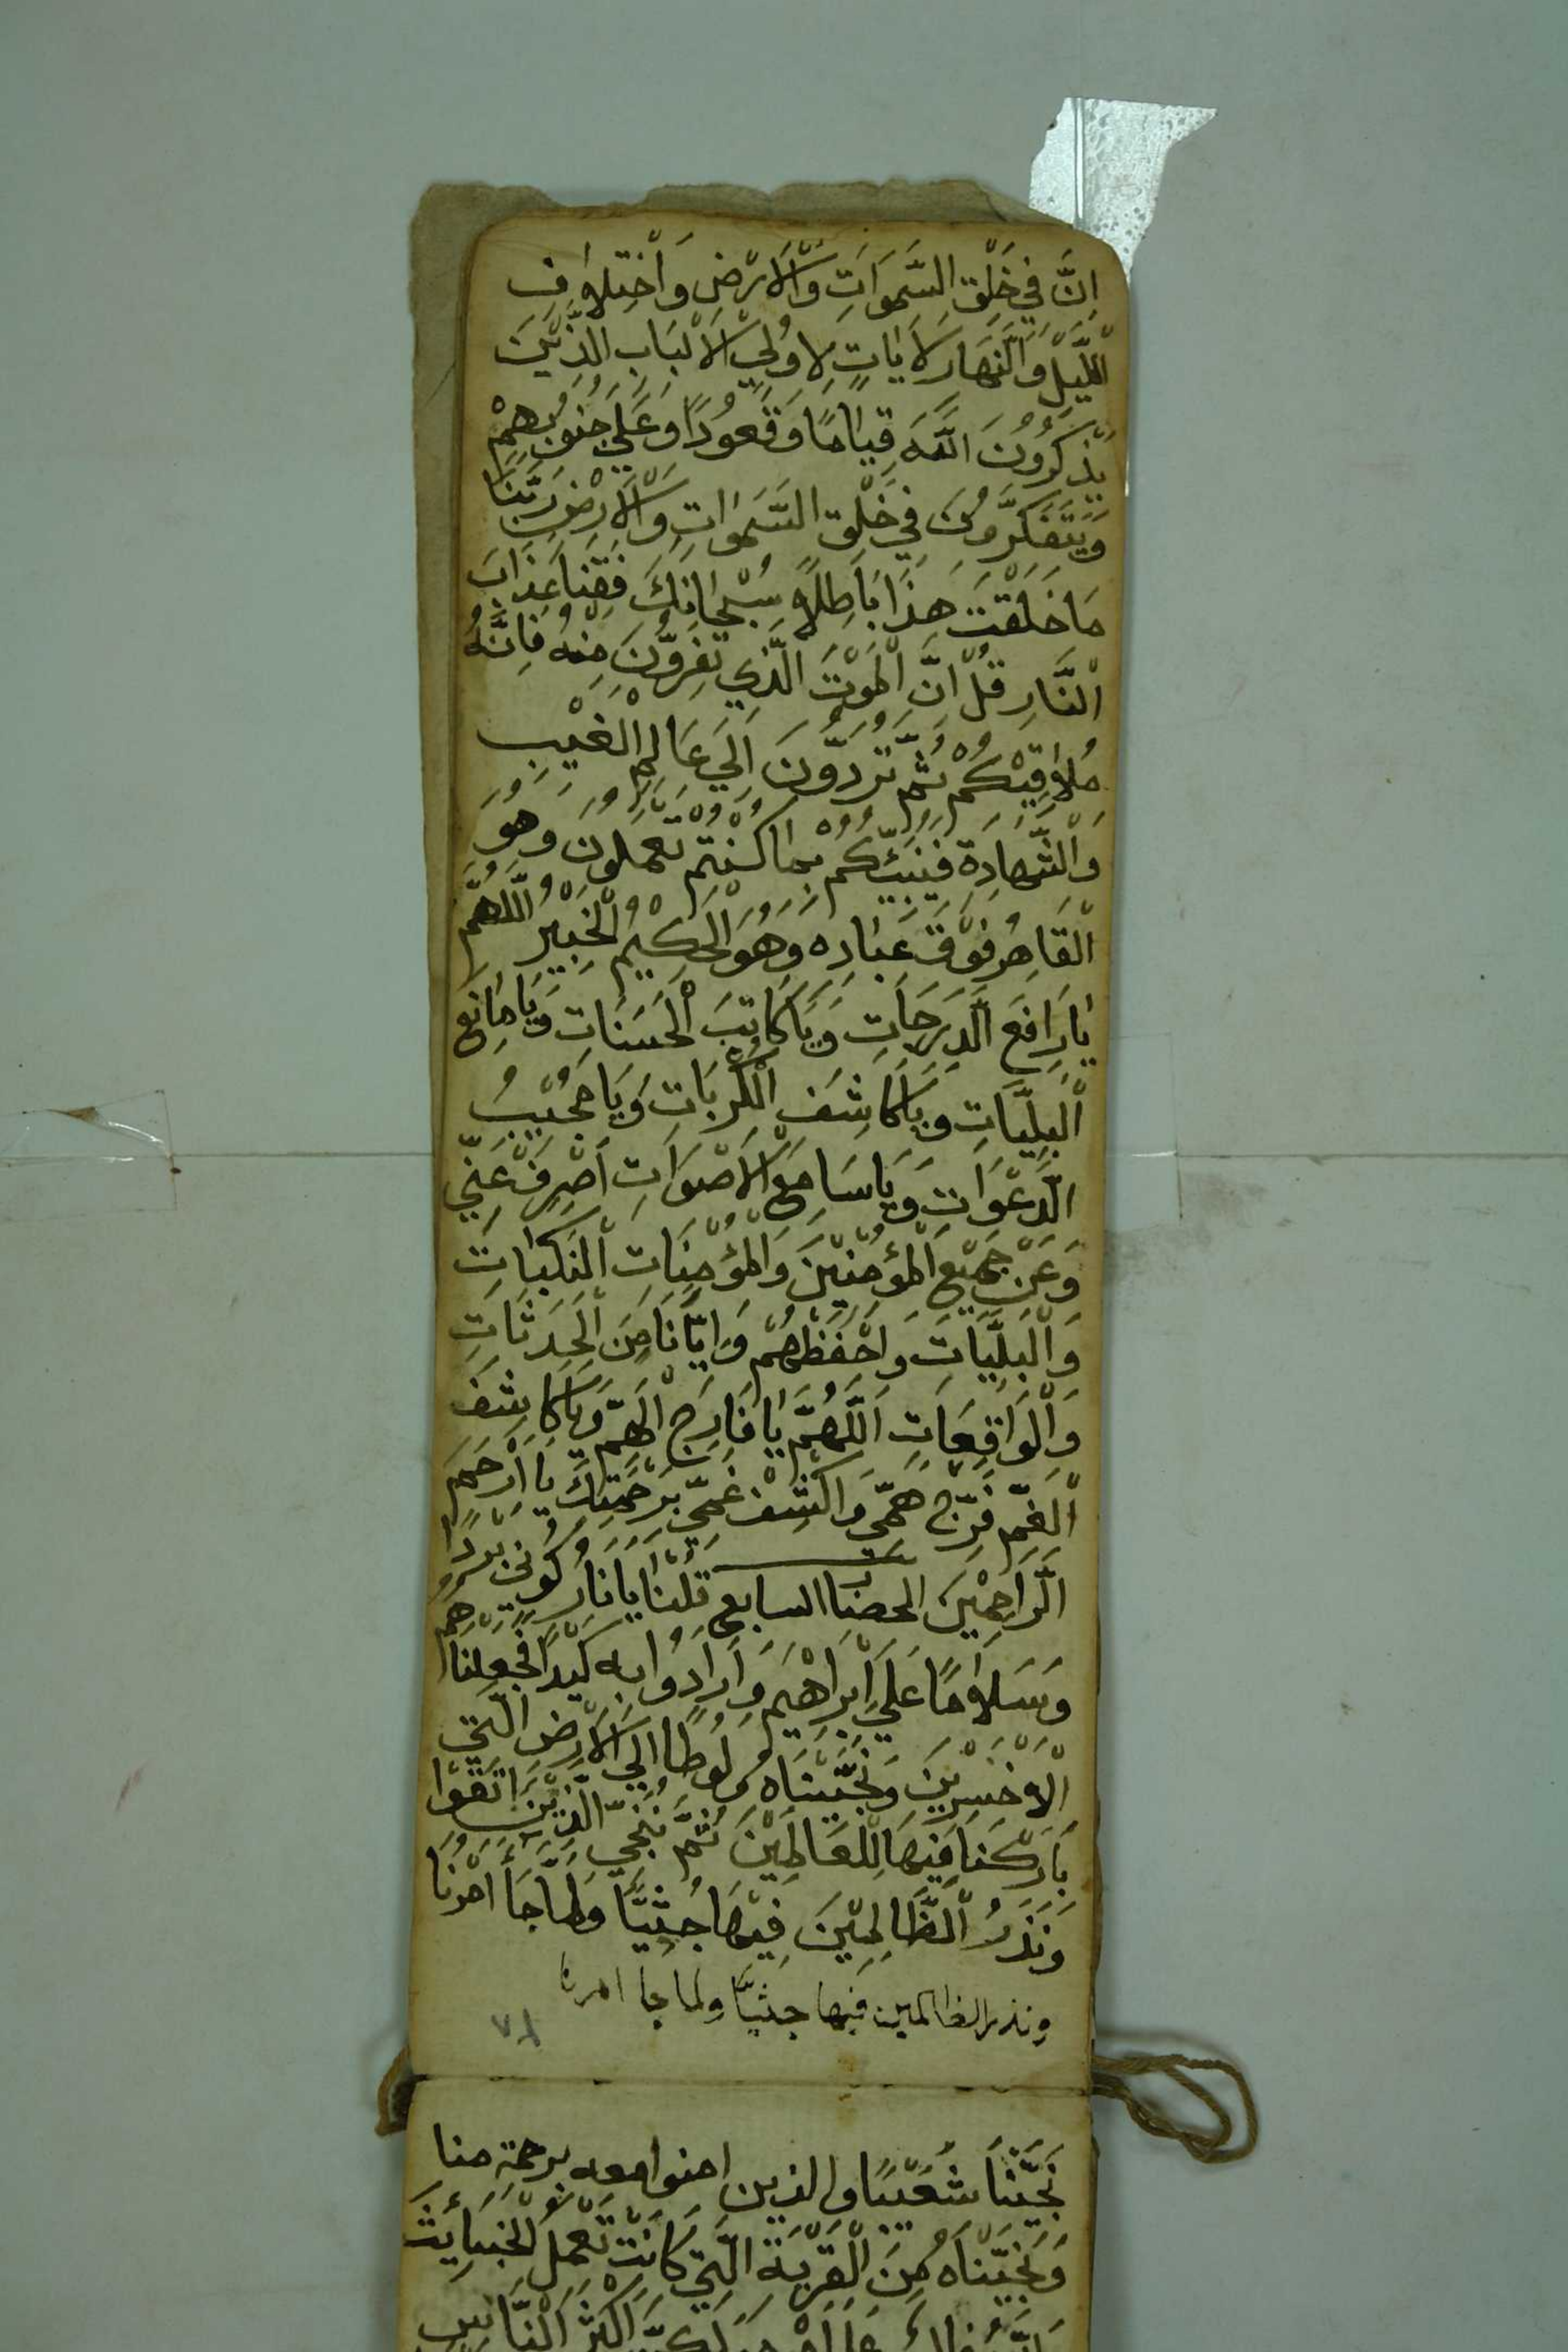 اِنَّ فِي خَلْقِ السَّمَوَاتِ وَالْاَرْضِ وَاخْتِلَافِ
الَّليْلِ وَالنَّهَارِ لَاَيَاتٍ لِاُولِي الْاَلْبَابِ الَّذِيْنَ
يَذْكُرُوْنَ اللَّهَ قِيَامًا وَقُعُوْدًا وَعَلَى جُنُوْبِهِمْ
وَيَتَفَكَّرُوْنَ فِي خَلْقِ السَّمَوَاتِ وَالْاَرْضِ رَبَّنَا
مَا خَلَقْتَ هَذَا بَاطِلًا سُبْحَانَكَ فَقِنَا عَذَابَ
النَّارِ قُلْ اِنَّ الْمَوْتَ الَّذِي تَفِرُّوْنَ مِنْهُ فَاِنَّهُ
مُلَاقِيْكُمْ ثُمَّ تُرَدُّوْنَ اِلَى عَالِمِ الْغَيْبِ
وَالشَّهَادَةِ فَيُنَبِّئُكُمْ بِمَا كُنْتُمْ تَعْمَلُوْنَ وَهُوَ
الْقَاهِرُ فَوْقَ عِبَادِهِ وَهُوَ الْحَكِيْمُ الْخَبِيْرُ اَللَّهُمَّ
يَا رَافِعَ الدَّرَجَاتِ وَيَا كَاتِبَ الْحَسَنَاتِ وَيَا مَانِعَ
الْبَلِيَّاتِ وَيَا كَاشِفَ الْكُرُبَاتِ وَيَا مُجِيْبَ
الدَّعَوَاتِ وَيَا سَامِعَ الْاَصْوَاتِ اَصْرِفْ عَنِّي
وَعَنْ جَمِيْعِ الْمُؤْمِنِيْنَ وَالْمُؤْمِنَاتِ النَّكَبَاتِ
وَالْبَلِيَّاتِ وَاحْفَظْهُمْ وَاِيَّانَا مِنَ الْحَدَثَاتِ
وَالْوَاقِعَاتِ اَللَّهُمَّ يَا فَارِجَ الْهَمِّ وَيَا كَاشِفَ
الْغَمِّ فَرِّجْ هَمِّي وَاكْشِفْ غَمِّي بِرَحْمَتِكَ يَا اَرْحَمَ
الرَّاحِمِيْنَ الحضاب السابع قُلْنَا يَا نَارُ كُوْنِي بَرْدًا
وَسَلَامًا عَلَى اِبْرَاهِيْمَ وَاَرَادُوْا بِهِ كَيْدًا فَجَعَلْنَاهُمُ
الْاَخْسَرِيْنَ وَنَجَّيْنَاهُ وَلُوطًا اِلَى الْاَرْضِ الَّتِي
بَارَكْنَا فِيْهَا لِلْعَالَمِيْنَ ثُمَّ نُنَجِّي الَّذِيْنَ اتَّقَوْا
وَنَذَرُ الظَّالِمِيْنَ فِيْهَا جِثِيًّا وَلَمَّا جَاءَ اَمْرُنَا
ونذر الظالمين فيها جثيًّا ولما جا امرنا
نَجَّيْنَا شُعَيْبًا والذين امنوا معه برحمة منا
وَنَجَّيْنَاهُ مِنَ الْقَرْيَةِ الَّتِي كَانَتْ تَعْمَلُ الْخَبَائِثَ
اَكْثَرَ النَّاسِ